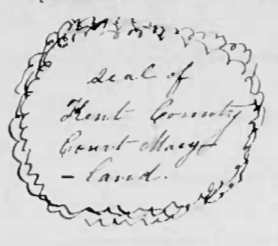 Seal of
Kent County
Court Mary-
-land.